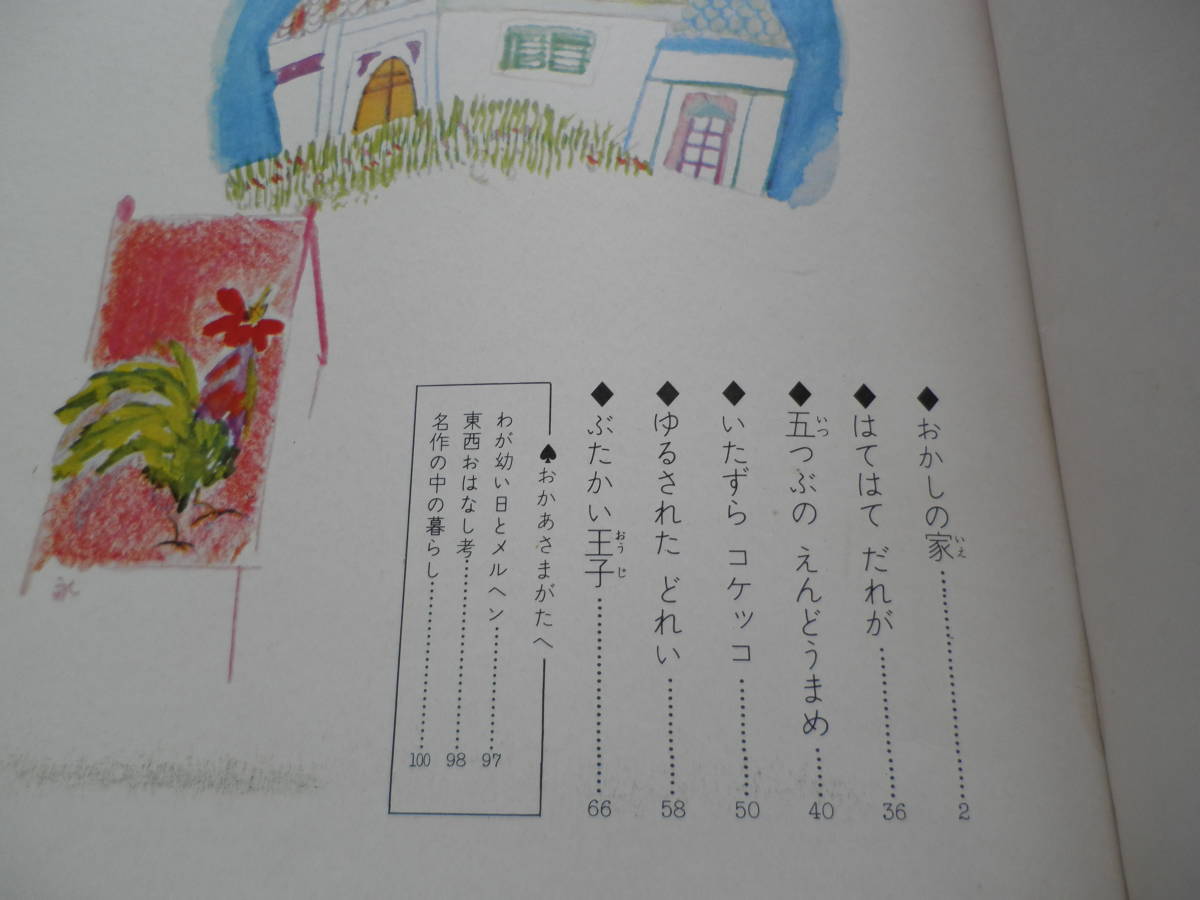 ◆おかしの家……2
◆はてはて だれが……36
◆五つぶの えんどうまめ……40
◆いたずら コケッコ……50
◆ゆるされた どれい……58
◆ぶたかい王子……66
♠おかあさまがたへ
わが幼い日とメルヘン……97
東西おはなし考……98
名作の中の暮らし……100